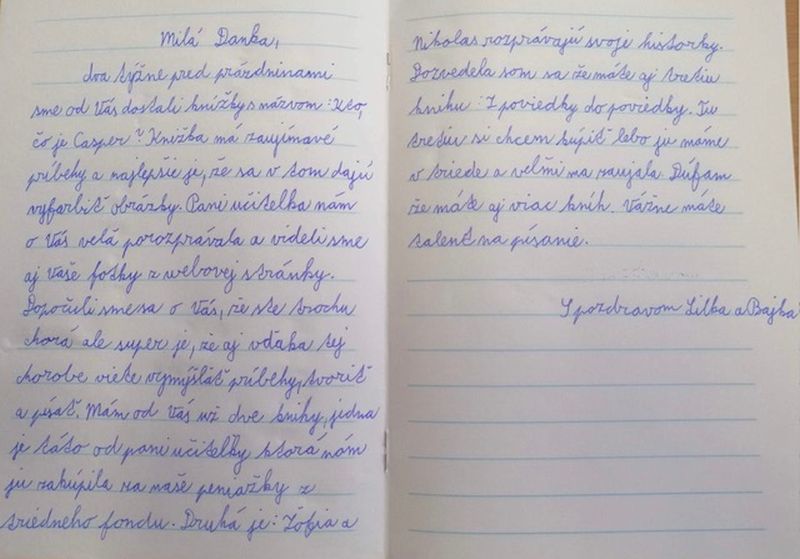 Milá Danka,
dva týžne pred prázdninami
sme od Vás dostali knížky s názvom: Kto,
čo je Casper? Knižba má zaujímavé
príbehy a najlepšie je, že sa v tom dajú
vyfarbiť obrázky. Pani učitelka nám
o Vás velá porozprávala a videli sme
aj Vaše fotky z webovej stránky.
Dopočuli sme sa o Vás, že ste trochu
chorá ale super je, že aj vďaka tej
chorobe viete vymýšlať príbehy, tvoriť
a písať. Mám od Vás už dve knihy, jedna
je táto od pani učitelky ktorá nám
ju zakúpila na naše peniažky z
triedneho fondu. Druhá je: Zófia a
Nikolas rozprávajú svoje historky.
Dozvedela som sa že máte aj tretiu
knihu: Z poviedky do poviedky. Tu
tretiu si chcem kúpiť lebo ju máme
v triede a velmi ma zaujala. Dúfam
že máte aj viac kníh. Vážne máte
talent na písanie.
S pozdravom Lilka a Bajka